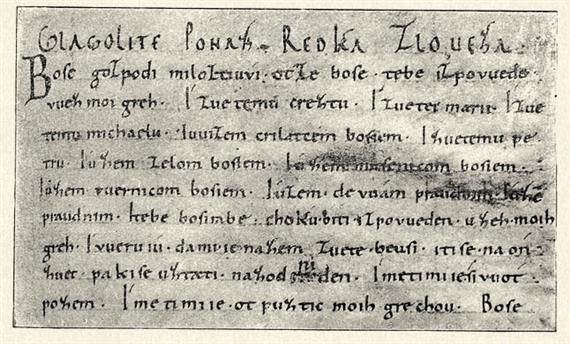 GLAGOLITE PONAZ REDKA ZLOUEZA.
Bose gozpodi miloztiuvi. otze bose. tebe izpovuede.
vuez moi greh. I zuetemu creztu. I zuetei marii. I zue
temu michaelu. Iuuizem crilatcem bosiem. I zuetemu pe
tru. Iuzem zelom bosiem. Iuzem musenicom bosiem.
Iuzem vuernicom bosiem. Iuzem. devuam praudnim. Iuzem
praudnim. Itebe bosirabe. chokubiti. izpovueden. uzeh moih
greh. Iuueruiu. dami ie nazem zuete. beusi. itise. na on
zuet. pakise uztati. nazodni den. Imetimi ie sivuot
pozem. Imetimi ie. otpuztic moih grechou. Bose